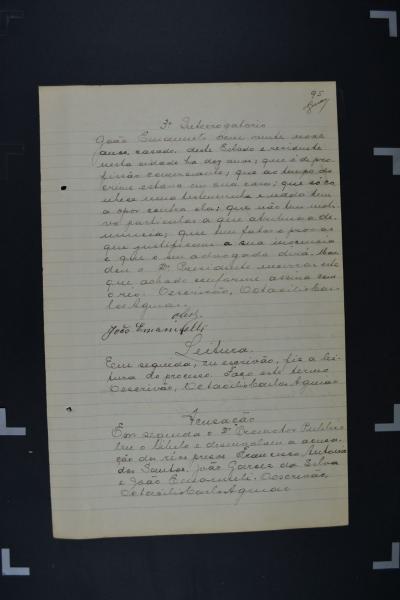 95
3º Interrogatorio
João Emanueli com vinte nove
annos, casado, deste Estado e residente
nesta cidade ha dez annos; que é de pro-
fissão commerciante; que ao tempo do
crime estava em sua casa; que só co-
nhece uma testemunha e nada tem
a oppor contra ella; que não tem moti-
vo particular a que attribua a de-
nuncia; que tem factos e provas
que justificam a sua innocencia
e que o seu advogado dirá. Man-
dou o Dr. Presidente encerrar este
que achado conforme assina com
o réo. Oescrivão, Octacilio Car-
los Aguiar.
João Emanuelli
Leitura
Em seguida, eu escrivão, fiz a lei-
tura do processo. Faço este termo
Oescrivão, Octacilio Carlos Aguiar
Accusação
Em seguida o Dr. Promotor Publico
leu o libello e desenvolveu a accusa-
ção dos réos presos Francisco Antonio
dos Santos, João Garcez da Silva
e João Emanueli. Oescrivão,
Octacilio Carlos Aguiar